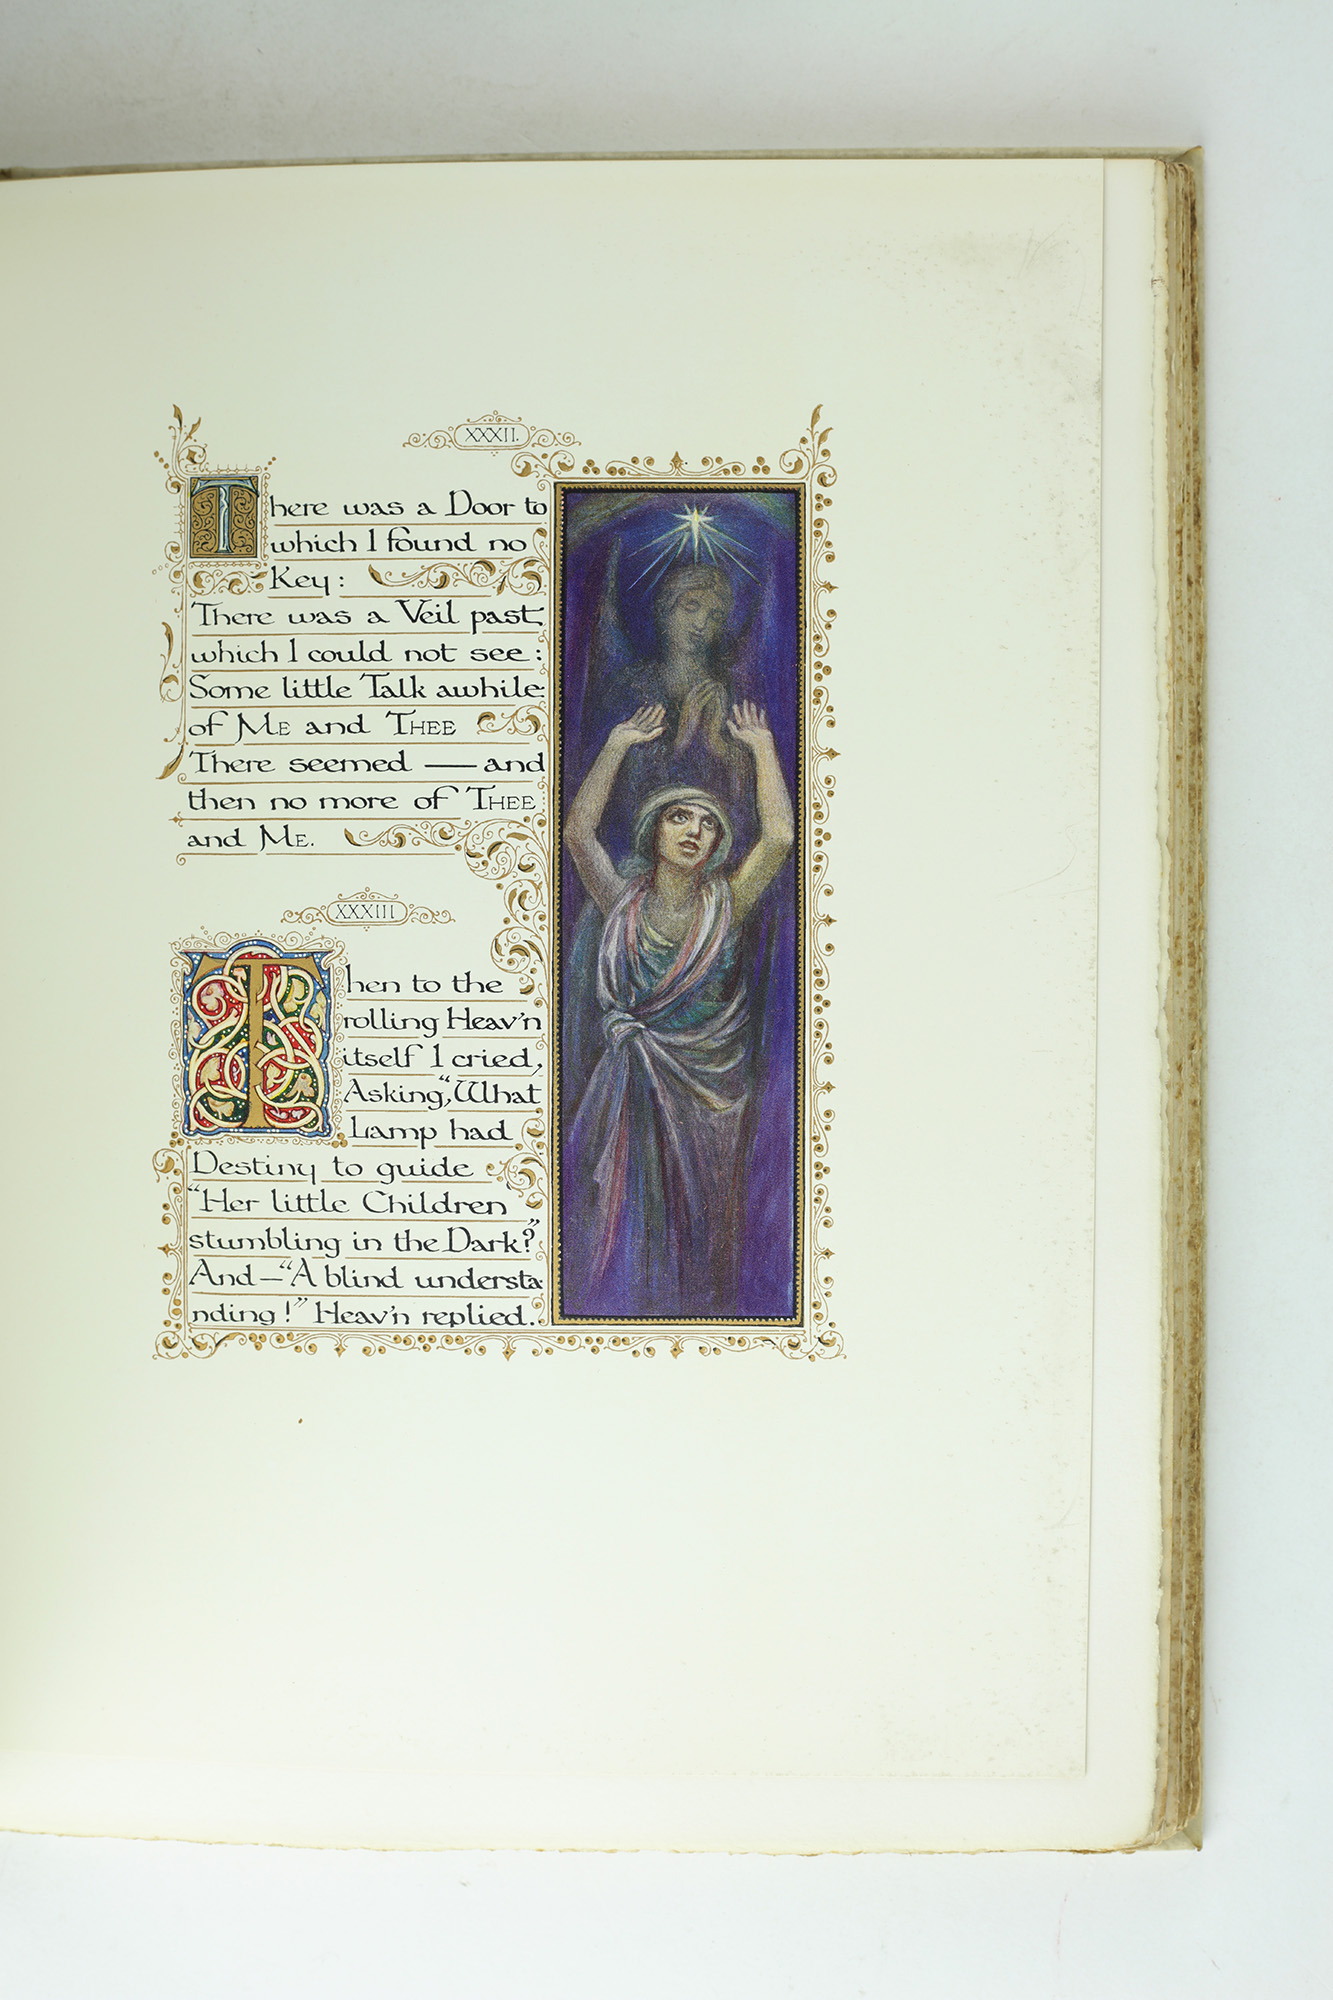 XXXII.
There was a Door to
which I found no
Key:
There was a Veil past
which I could not see:
Some little Talk awhile
of ME and THEE
There seemed — and
then no more of THEE
and ME.
XXXIII
Then to the
rolling Heav'n
itself I cried,
Asking, "What
Lamp had
Destiny to guide
"Her little Children
stumbling in the Dark?"
And—"A blind understa
nding!" Heav'n replied.